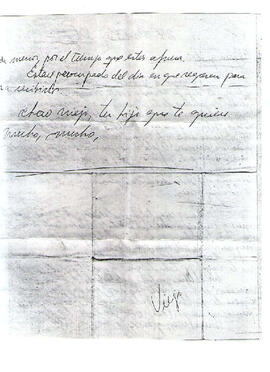 menor, por el tiempo que estes afuera.
Estare preocupado del dia en que regresen para
recibirlos.
Chao viejo, tu hijo que te quiere
mucho, mucho,